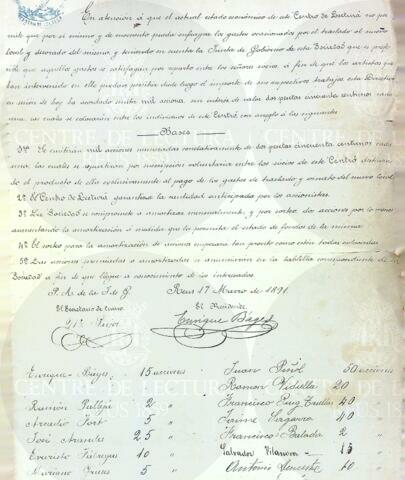 En atencion á que el actual estado económico de este Centro de Lectura no per-
mite que por si mismo y de momento pueda sufragar los gastos ocasionados por el traslado al nuevo
local y decorado del mismo, y teniendo en cuenta la Junta de Gobierno de esta Sociedad que es prefe-
rible que aquellos gastos se satisfagan por reparto entre los señores socios, á fin de que los artistas que
han intervenido en ello puedan percibir desde luego el importe de sus respectivos trabajos, esta Directiva
en sesion de hoy ha acordado emitir mil acciones, sin interés, de valor dos pesetas cincuenta céntimos cada
una, las cuales se colocarán entre los individuos de este Centro con arreglo á las siguientes
Bases
1ª Se emitirán mil acciones numeradas correlativamente de dos pesetas cincuenta céntimos cada
una, las cuales se repartirán por suscripcion voluntaria entre los socios de este Centro destinan-
do el producto de ellas exclusivamente al pago de los gastos de traslado y ornato del nuevo local.
2ª El Centro de Lectura garantiza la cantidad anticipada por los accionistas.
3ª La Sociedad se compromete á amortizar mensualmente, y por sorteo dos acciones por lo menos
aumentando la amortización á medida que lo permita el estado de fondos de la misma.
4ª El sorteo para la amortización de acciones empezará tan pronto como estén todas colocadas.
5ª Las acciones sorteadas ó amortizadas se anunciarán en la tablilla correspondiente de la
Sociedad á fin de que llegue á conocimiento de los interesados.
P. A. de la J. de G. Reus 17 Marzo de 1891.
El Secretario de turno El Presidente
Enrique Bages
Enrique Bages 15 acciones
Ramon Pallejá 2 "
Arcadio Fort 5 "
José Aranda 25 "
Evaristo Fábregas 10 "
Mariano 5 "
Juan Piñol 50 acciones
Ramon Vidiella 20 "
Francisco Puig 40 "
Jaime 40 "
Francisco Balada 2 "
Salvador Vilanova 15 "
Antonio 10 "
CENTRE DE LECTURA
REUS 1859